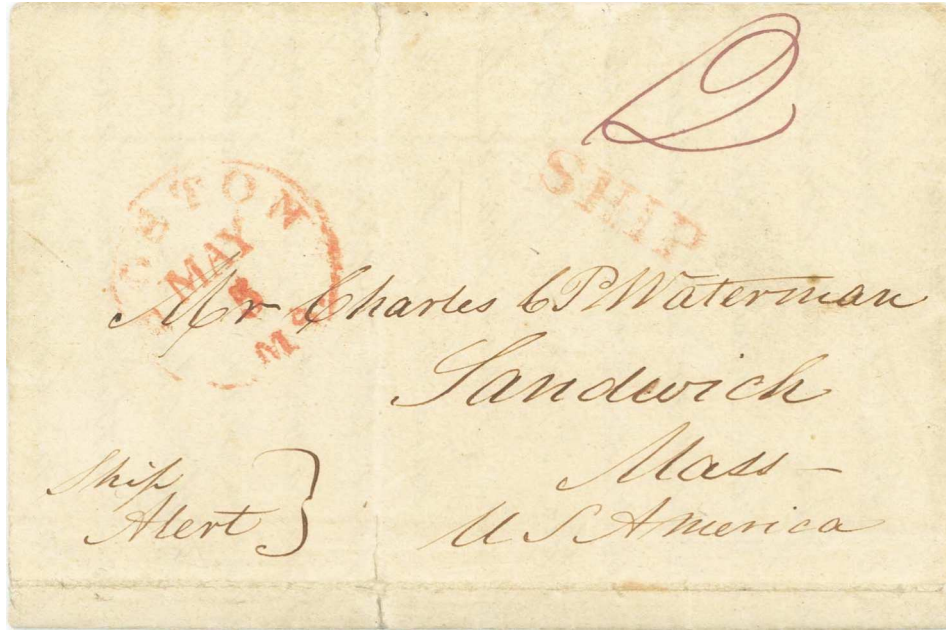 SHIP
BOSTON
MAY
5
MS
Mr Charles C P Waterman
Sandwich
Mass —
U S America
Ship
Alert